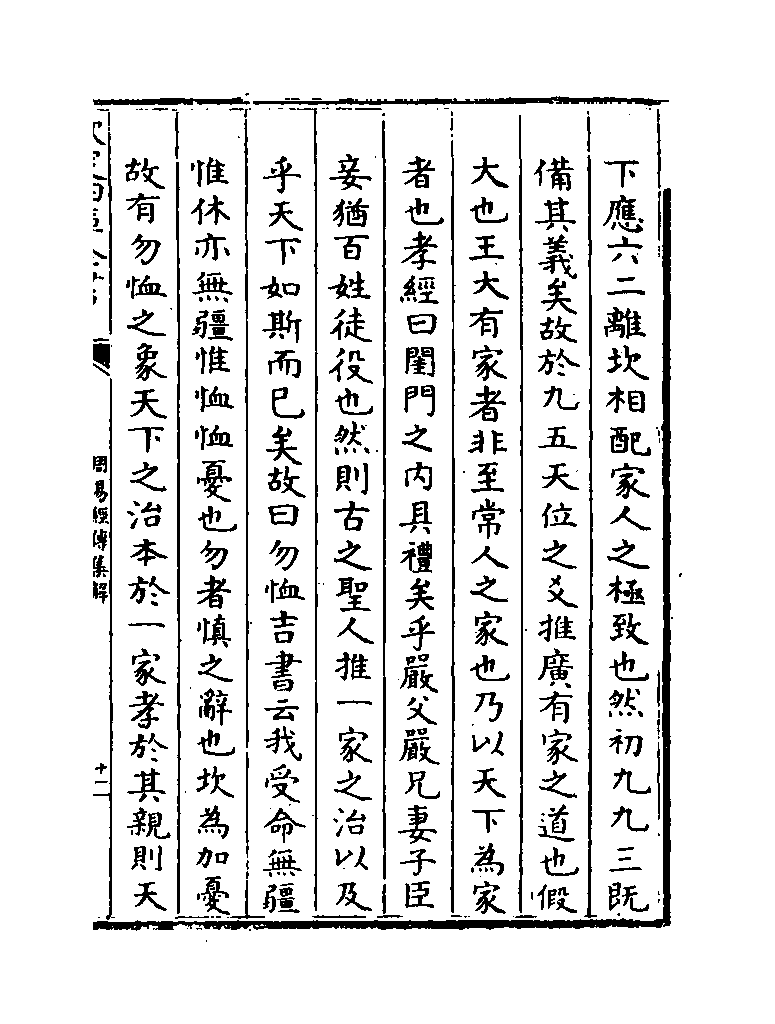 下應六二離坎相配家人之極致也然初九九三既
備其義矣故於九五天位之爻推廣有家之道也假
大也王大有家者非至常人之家也乃以天下為家
者也孝經曰閨門之内具禮矣乎嚴父嚴兄妻子臣
妾猶百姓徒役也然則古之聖人推一家之治以及
乎天下如斯而已矣故曰勿恤吉書云我受命無疆
惟休亦無疆惟恤恤憂也勿者慎之辭也坎為加憂
故有勿恤之象天下之治本於一家孝於其親則天
周易經傳集解
十二